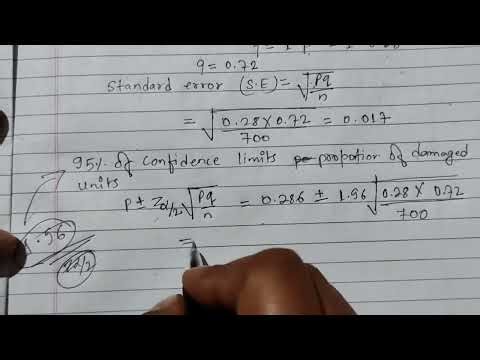 q = 0.72
Standard error (S.E) = √pq/n
= √0.28 × 0.72/700 = 0.017
95% of confidence limits propotior of damaged
units
P ± Zα/2 √pq/n = 0.286 ± 1.96 √0.28 × 0.72/700
.96
=